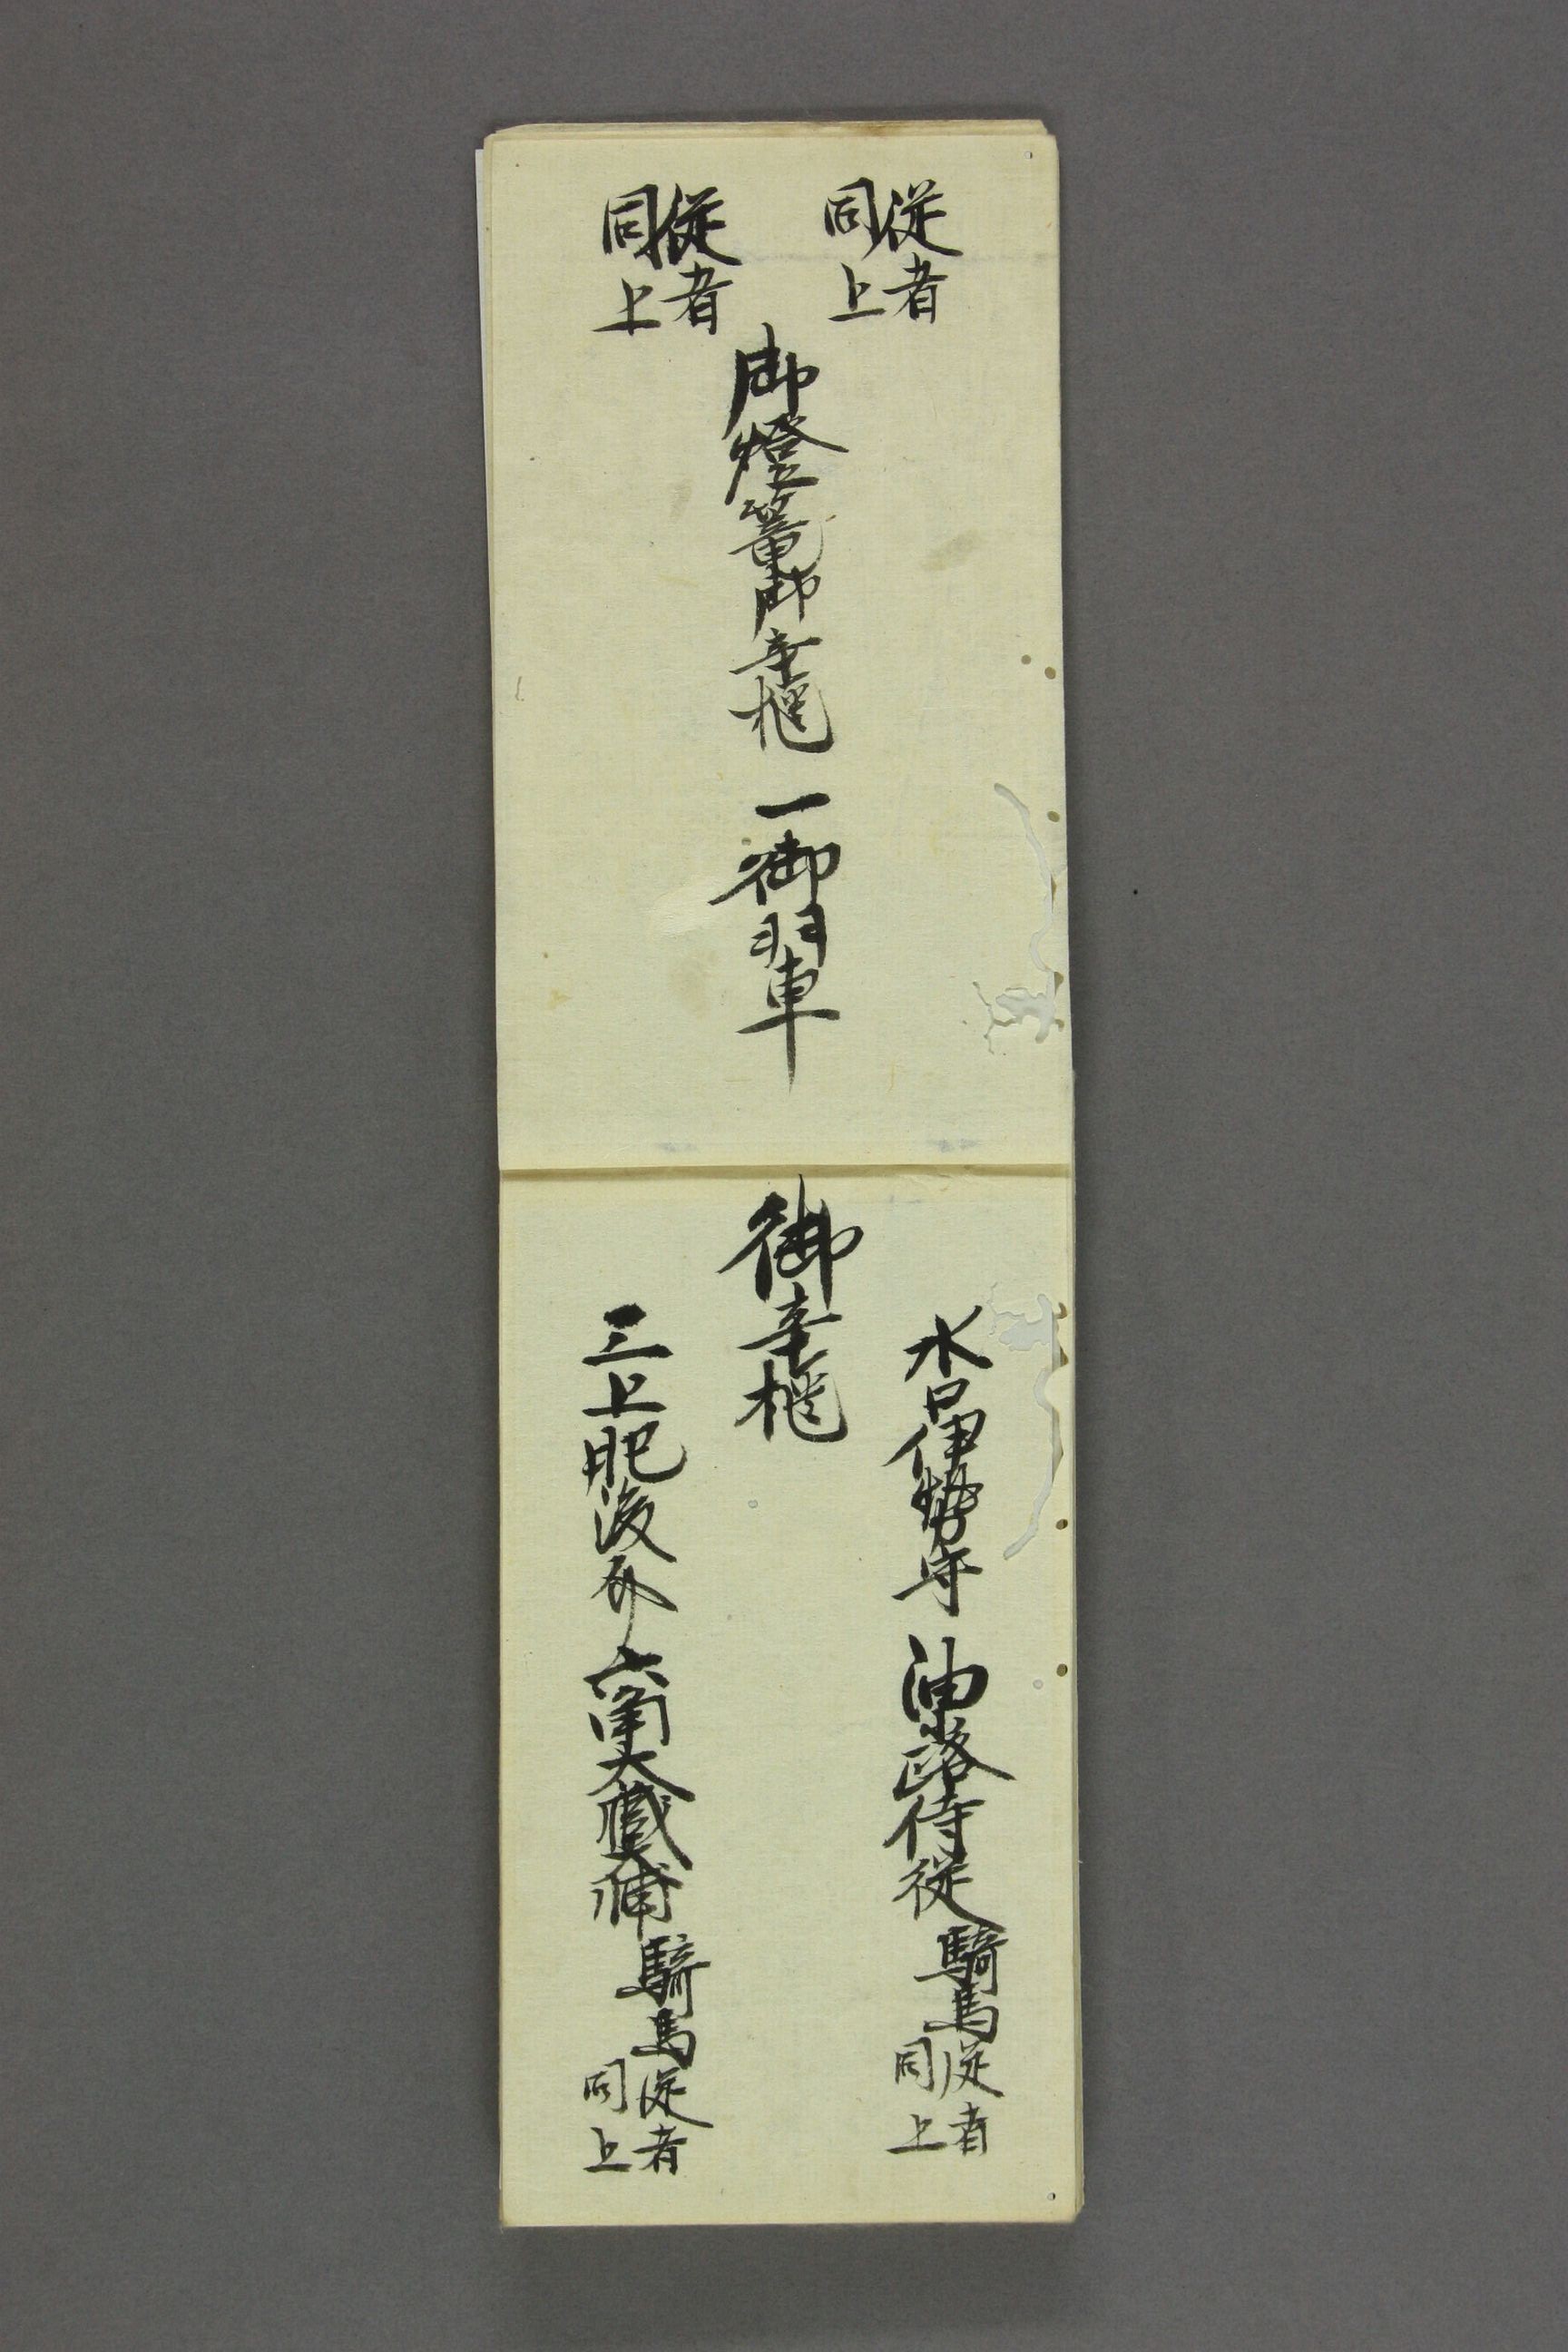 従者
同上
御燈篭御辛櫃 一御羽車
従者
同上
水口伊勢守 油路侍従 騎馬 従者
同上
御辛櫃
三上肥後介 六角大蔵大輔 騎馬 従者
同上